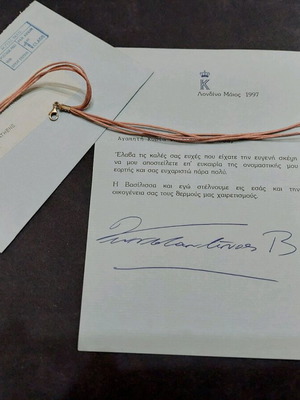 K
Λονδίνο Μάιος 1997
Αγαπητή
Έλαβα τις καλές σας ευχές που είχατε την ευγενή σκέψη
να μου αποστείλετε επ' ευκαιρία της ονομαστικής μου
εορτής και σας ευχαριστώ πάρα πολύ.
Η Βασίλισσα και εγώ στέλνουμε εις εσάς και την
οικογένεια σας τους θερμούς μας χαιρετισμούς.
Κωνσταντίνος Β